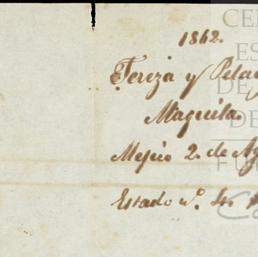 1862.
Tereza y Pelae
Maquila.
Mejico 2. de Ag
Estado n.º 4.
CE
ES
DE
DE
FU